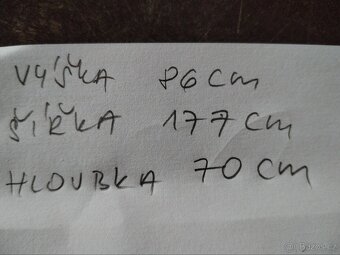 VÝŠKA 86 CM
ŠÍŘKA 177 CM
HLOUBKA 70 CM